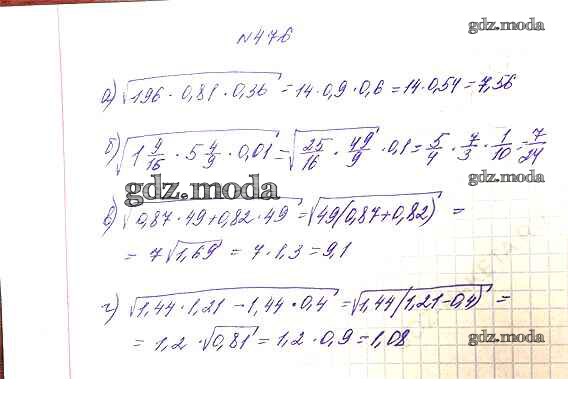 gdz.moda
№476
а) √196 · 0,81 · 0,36 = 14·0,9·0,6 = 14·0,54 = 7,56
б) √1 9/16 · 5 4/9 · 0,01 = √25/16 · 49/9 · 0,1 = 5/4 · 7/3 · 1/10 = 7/24
gdz.moda
в) √0,87·49+0,82·49 = √49(0,87+0,82) =
= 7√1,69 = 7·1,3 = 9,1
г) √1,44·1,21 – 1,44·0,4 = √1,44(1,21-0,4) =
= 1,2 · √0,81 = 1,2 · 0,9 = 1,08
gdz.moda